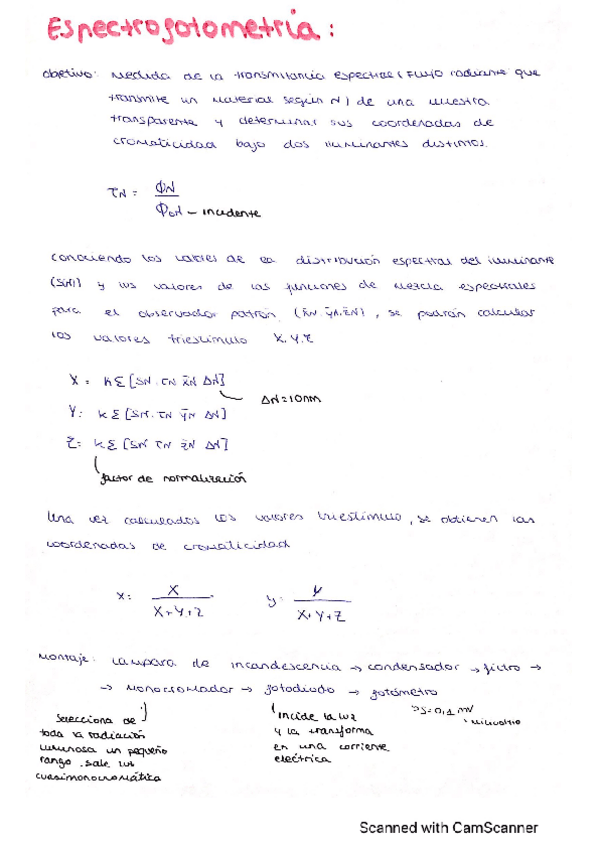 Espectrofotometría:
objetivo: Medida de la transmitancia espectral (Flujo radiante que
transmite un material según λ) de una muestra
transparente y determinar sus coordenadas de
cromaticidad bajo dos iluminantes distintos.
τλ = Φλ / Φ0λ – incidente
conociendo los valores de la distribución espectral del iluminante
(S(λ)) y los valores de las funciones de mezcla espectrales
para el observador patrón (x̄λ, ȳλ, z̄λ), se podrán calcular
los valores triestímulo X, Y, Z
X = k Σ [Sλ · τλ x̄λ Δλ]
Δλ = 10nm
Y = k Σ [Sλ · τλ ȳλ Δλ]
Z = k Σ [Sλ τλ z̄λ Δλ]
factor de normalización
Una vez calculados los valores triestímulo, se obtienen las
coordenadas de cromaticidad
x = X / X+Y+Z y = Y / X+Y+Z
Montaje: Lámpara de incandescencia → condensador → filtro →
→ Monocromador → fotodiodo → fotómetro
selecciona de
toda la radiación
luminosa un pequeño
rango. sale luz
cuasimonocromática
incide la luz
y la transforma
en una corriente
eléctrica
S=0,1 mV
Scanned with CamScanner